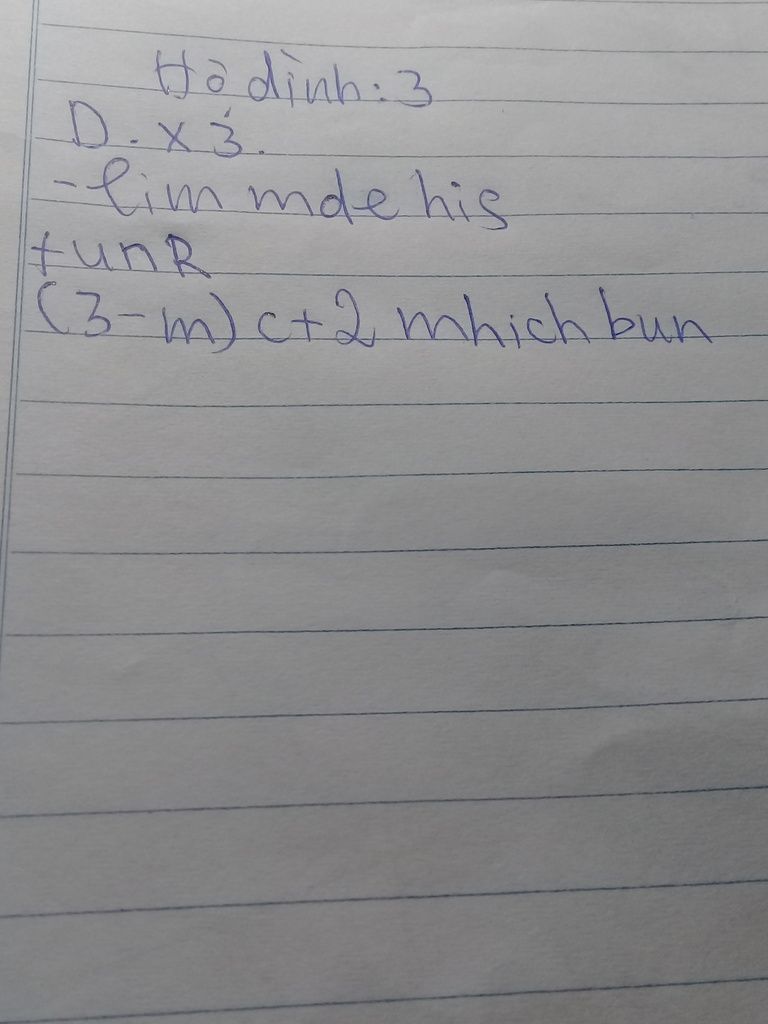 Hò dình: 3
D. x 3̉.
- lim mde his
tunR
(3-m) c+2 mhich bun